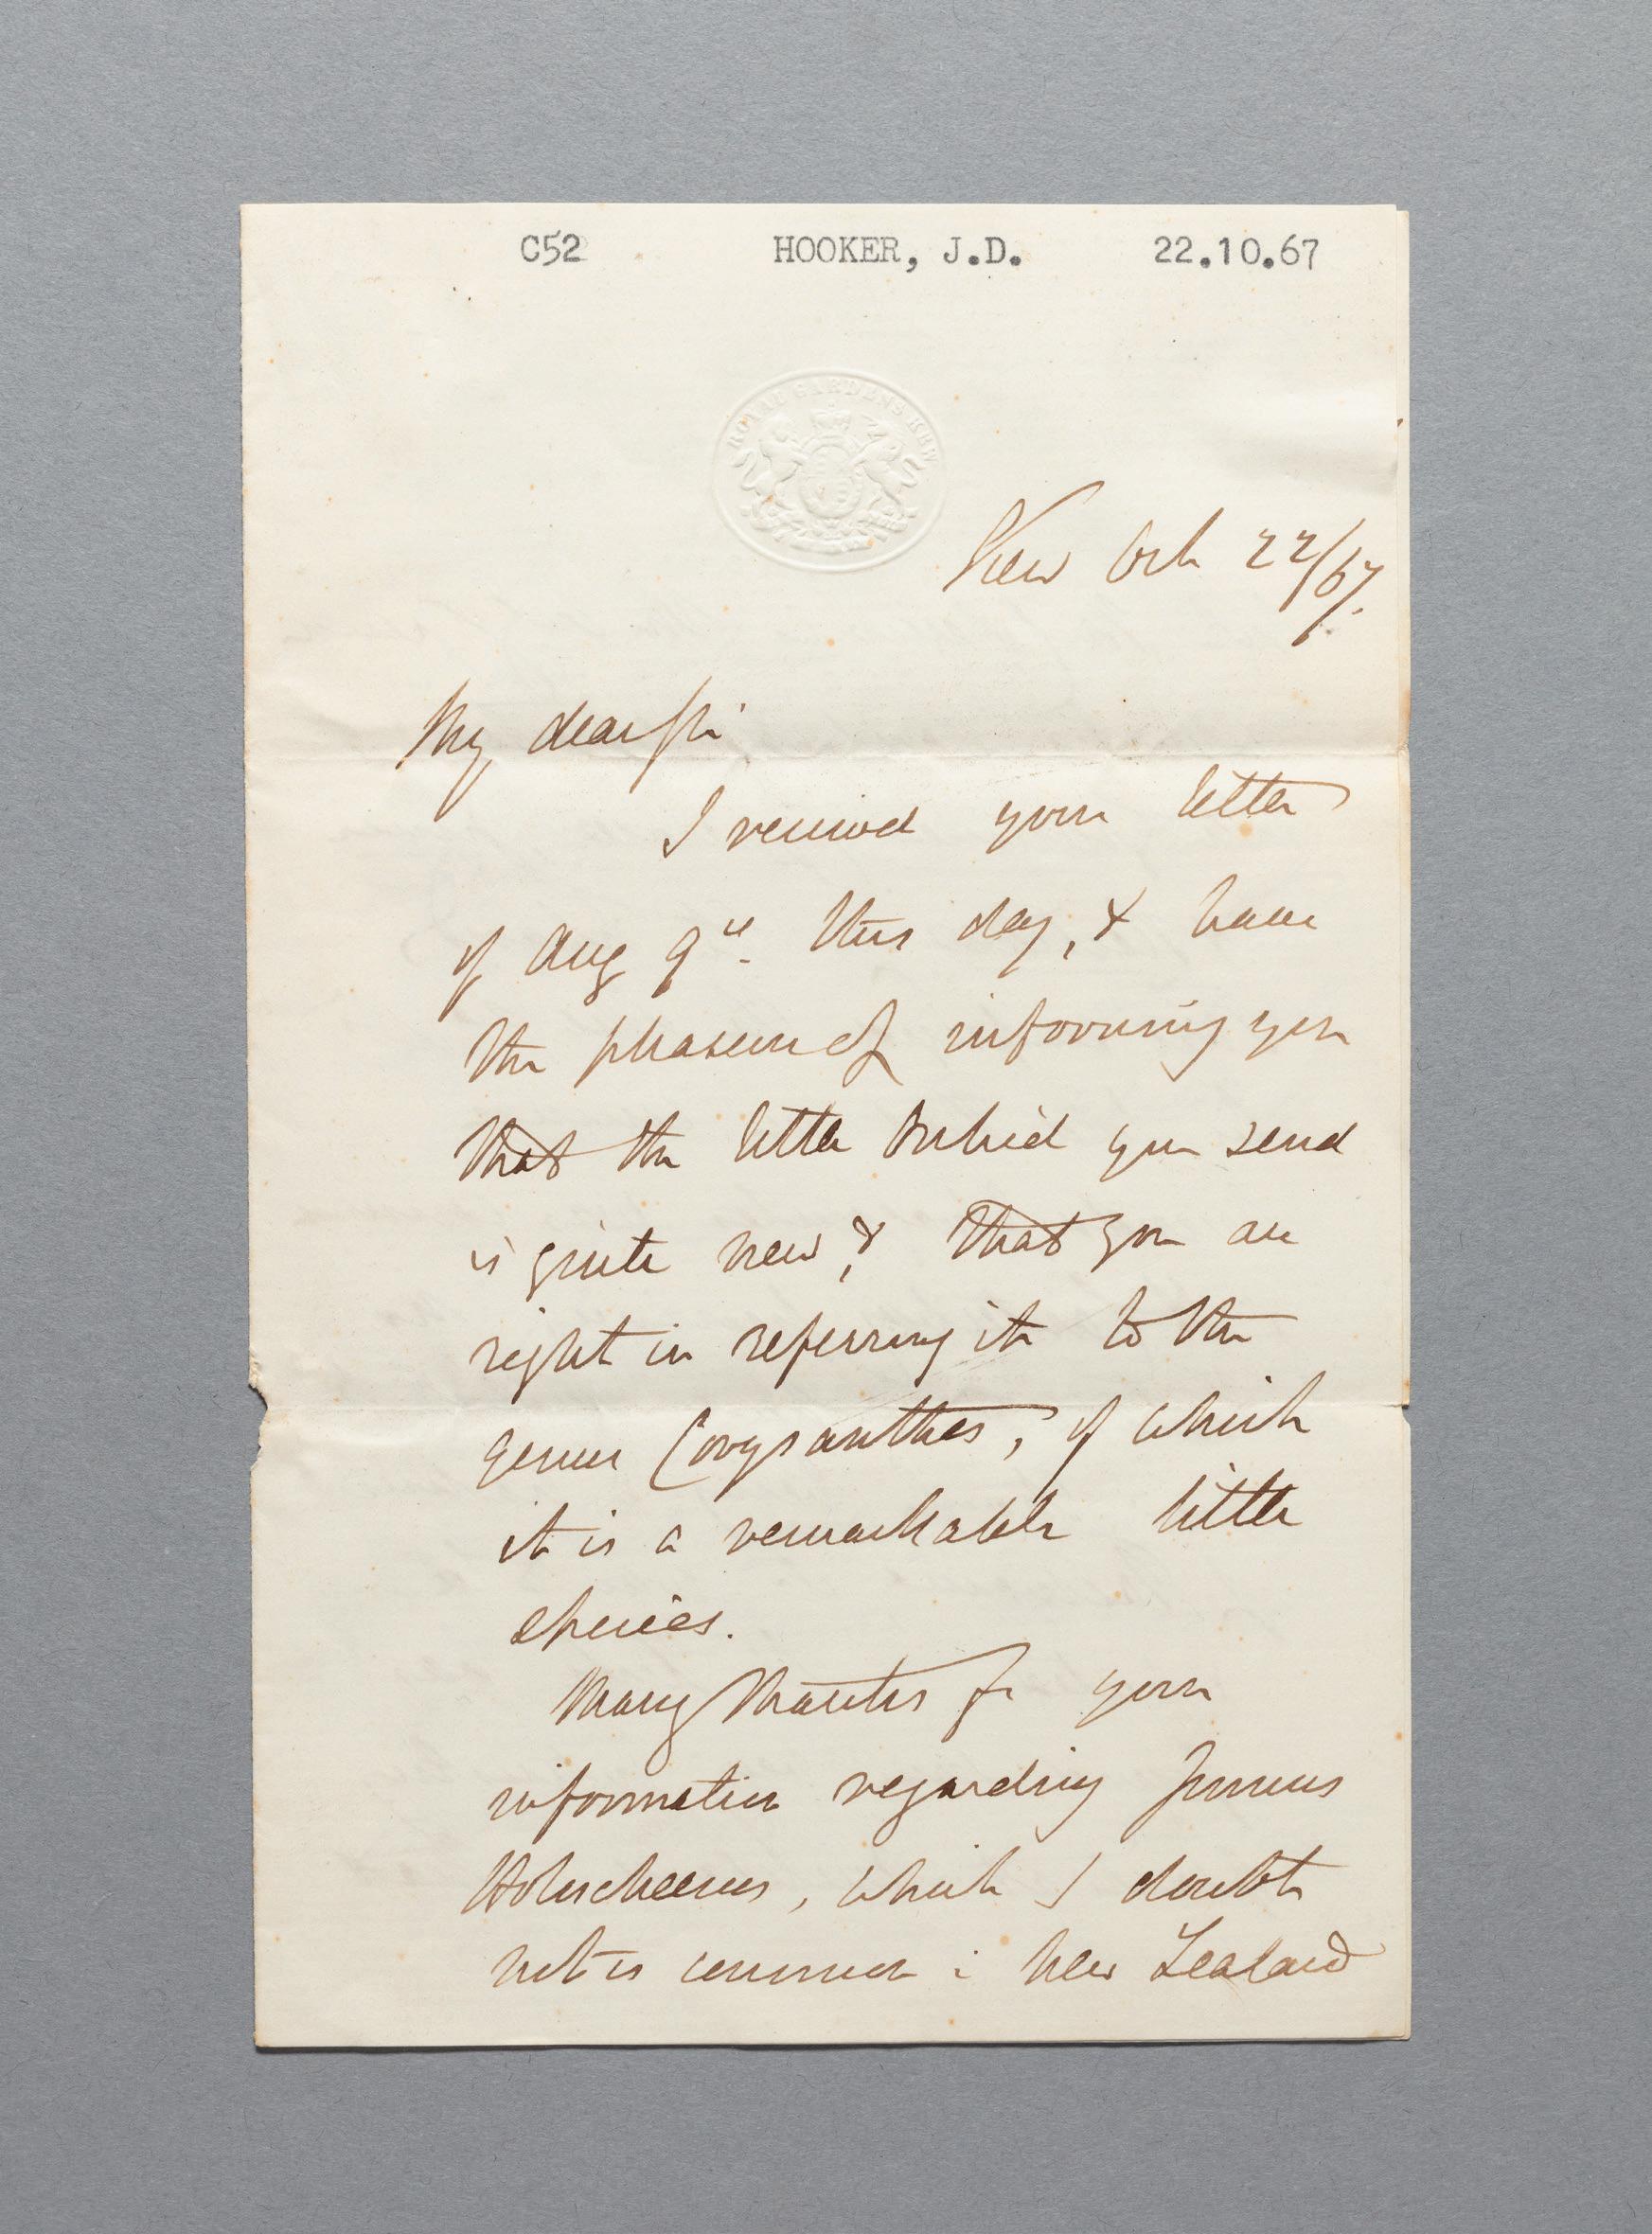 C52 HOOKER, J.D. 22.10.67
ROYAL GARDENS KEW
Kew Oct 22/67.
My dear Sir
I received your letter
of Aug 9th. this day, & have
the pleasure of informing you
that the little Orchid you send
is quite new, & that you are
right in referring it to the
genus Corysanthes, of which
it is a remarkable little
species.
Many thanks for your
information regarding Juncus
Holoschoenus, which I doubt
not is common in New Zealand